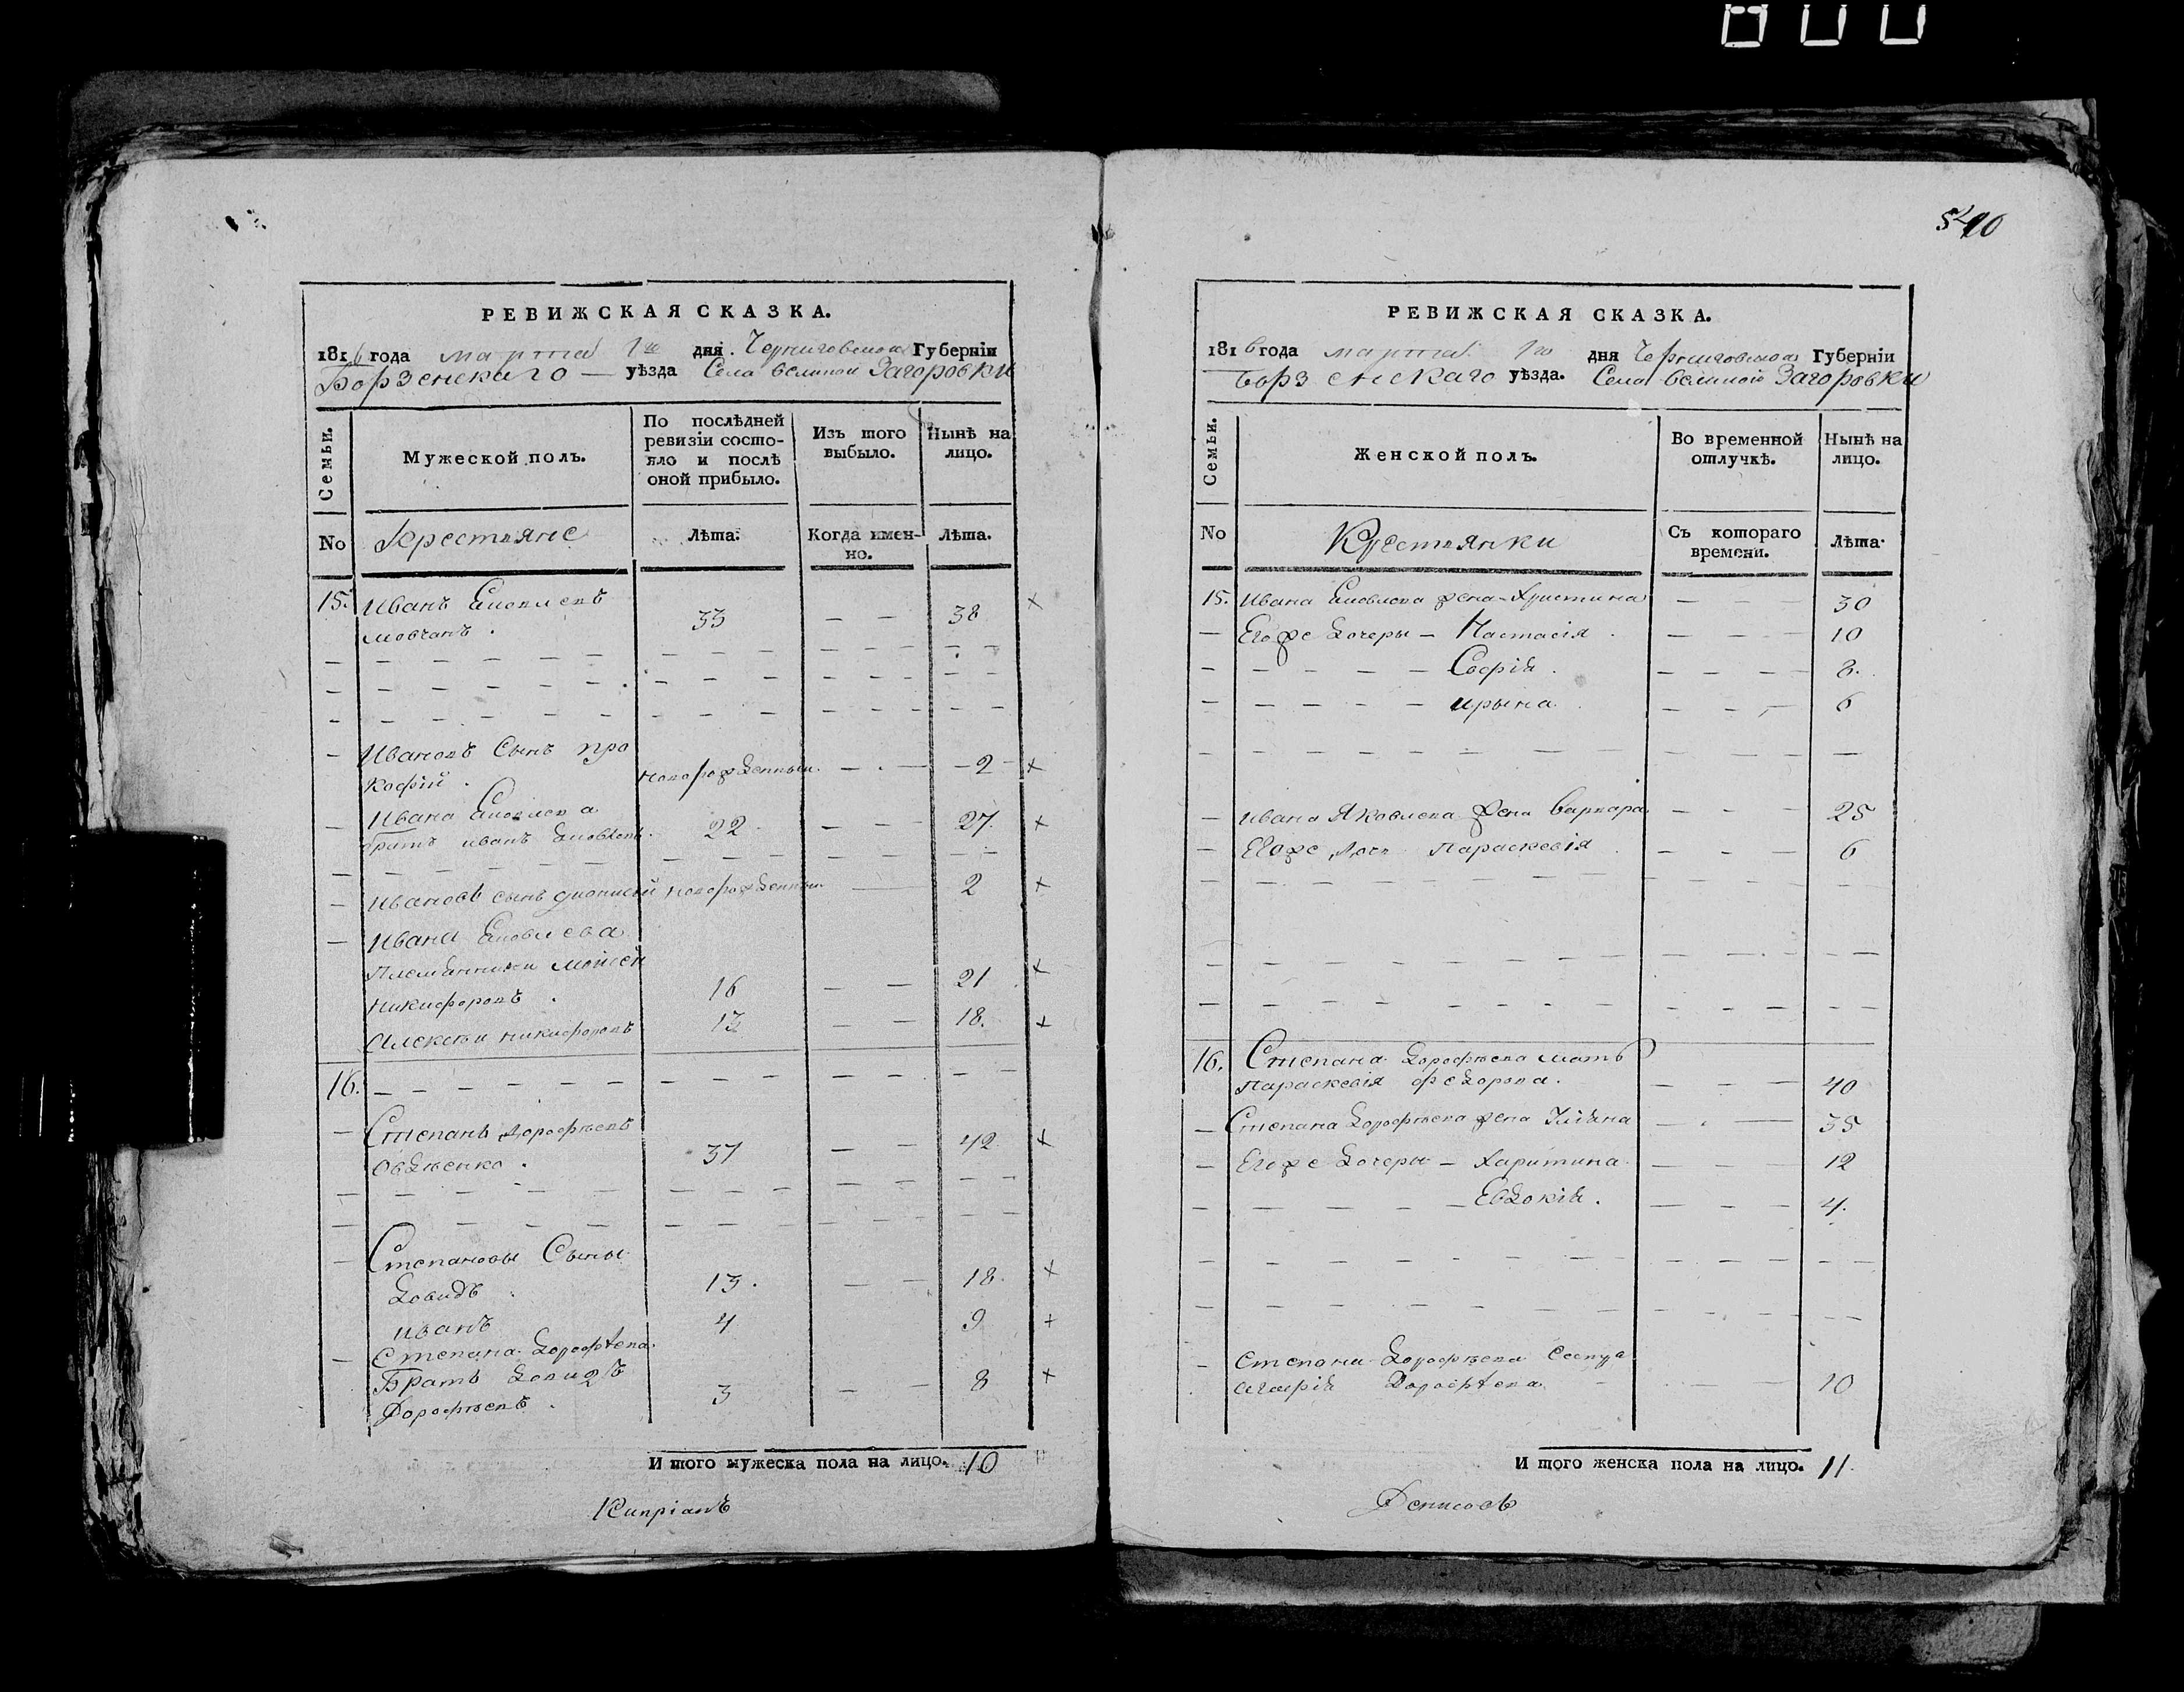 800
540
РЕВИЖСКАЯ СКАЗКА.
1816 года марта 1го дня Черниговской Губерніи
Борзенскаго уѣзда Села Великой Загоровки
Семьи.
Мужеской полъ.
По послѣдней ревизіи состояло и послѣ оной прибыло.
Изъ того выбыло.
Нынѣ на лицо.
No
Крестьяне
Лѣта.
Когда имен-
но.
Лѣта.
15. Иванъ Яковлевъ
Мовчанъ. 33 — — 38 ×
— Ивановъ Сынъ Про
кофій. новорожденный. — — 2 ×
— Ивана Яковлева
братъ Иванъ Яковлевъ. 22 — — 27 ×
— Ивановъ сынъ Дионисій новорожденный — 2 ×
— Ивана Яковлева
Племянники Мойсей
Никифоровъ. 16 — — 21 ×
Алексѣй Никифоровъ 13 — — 18. ×
16. — — — — — —
— Степанъ Дорофѣевъ
Овдѣенко. 37 — — 42 ×
— Степановы Сыны
Давидъ 13. — — 18. ×
Иванъ 4 9 +
— Степана Дорофѣева
Братъ Давидъ
Дорофѣевъ. 3 — — 8 ×
И того мужеска пола на лицо. 10
Кипріанъ
РЕВИЖСКАЯ СКАЗКА.
1816 года марта 1го дня Черниговской Губерніи
Борзенскаго уѣзда. Села Великой Загоровки
Семьи.
Женской полъ.
Во временной отлучкѣ.
Нынѣ на лицо.
No
Крестьянки
Съ котораго
времени.
Лѣта.
15. Ивана Яковлева жена Христина — — — 30
— Его же дочеры — Настасія. — — — 10
— — — — — Софія. — — — 8.
— — — — — Ирына. — — — 6
— Ивана Яковлева жена Варвара — — — 25
— Его же дочь Параскевія — — — 6
16. Степана Дорофѣева мать
Параскевія Федорова. — — — 40
— Степана Дорофѣева жена Уліяна — — 35
— Его же дочеры — Харитина — — — 12
— — — — — Евдокія. — — — 4.
— Степана Дорофѣева Сестра
Дорофѣева — — 10
И того женска пола на лицо. 11.
Денисовъ